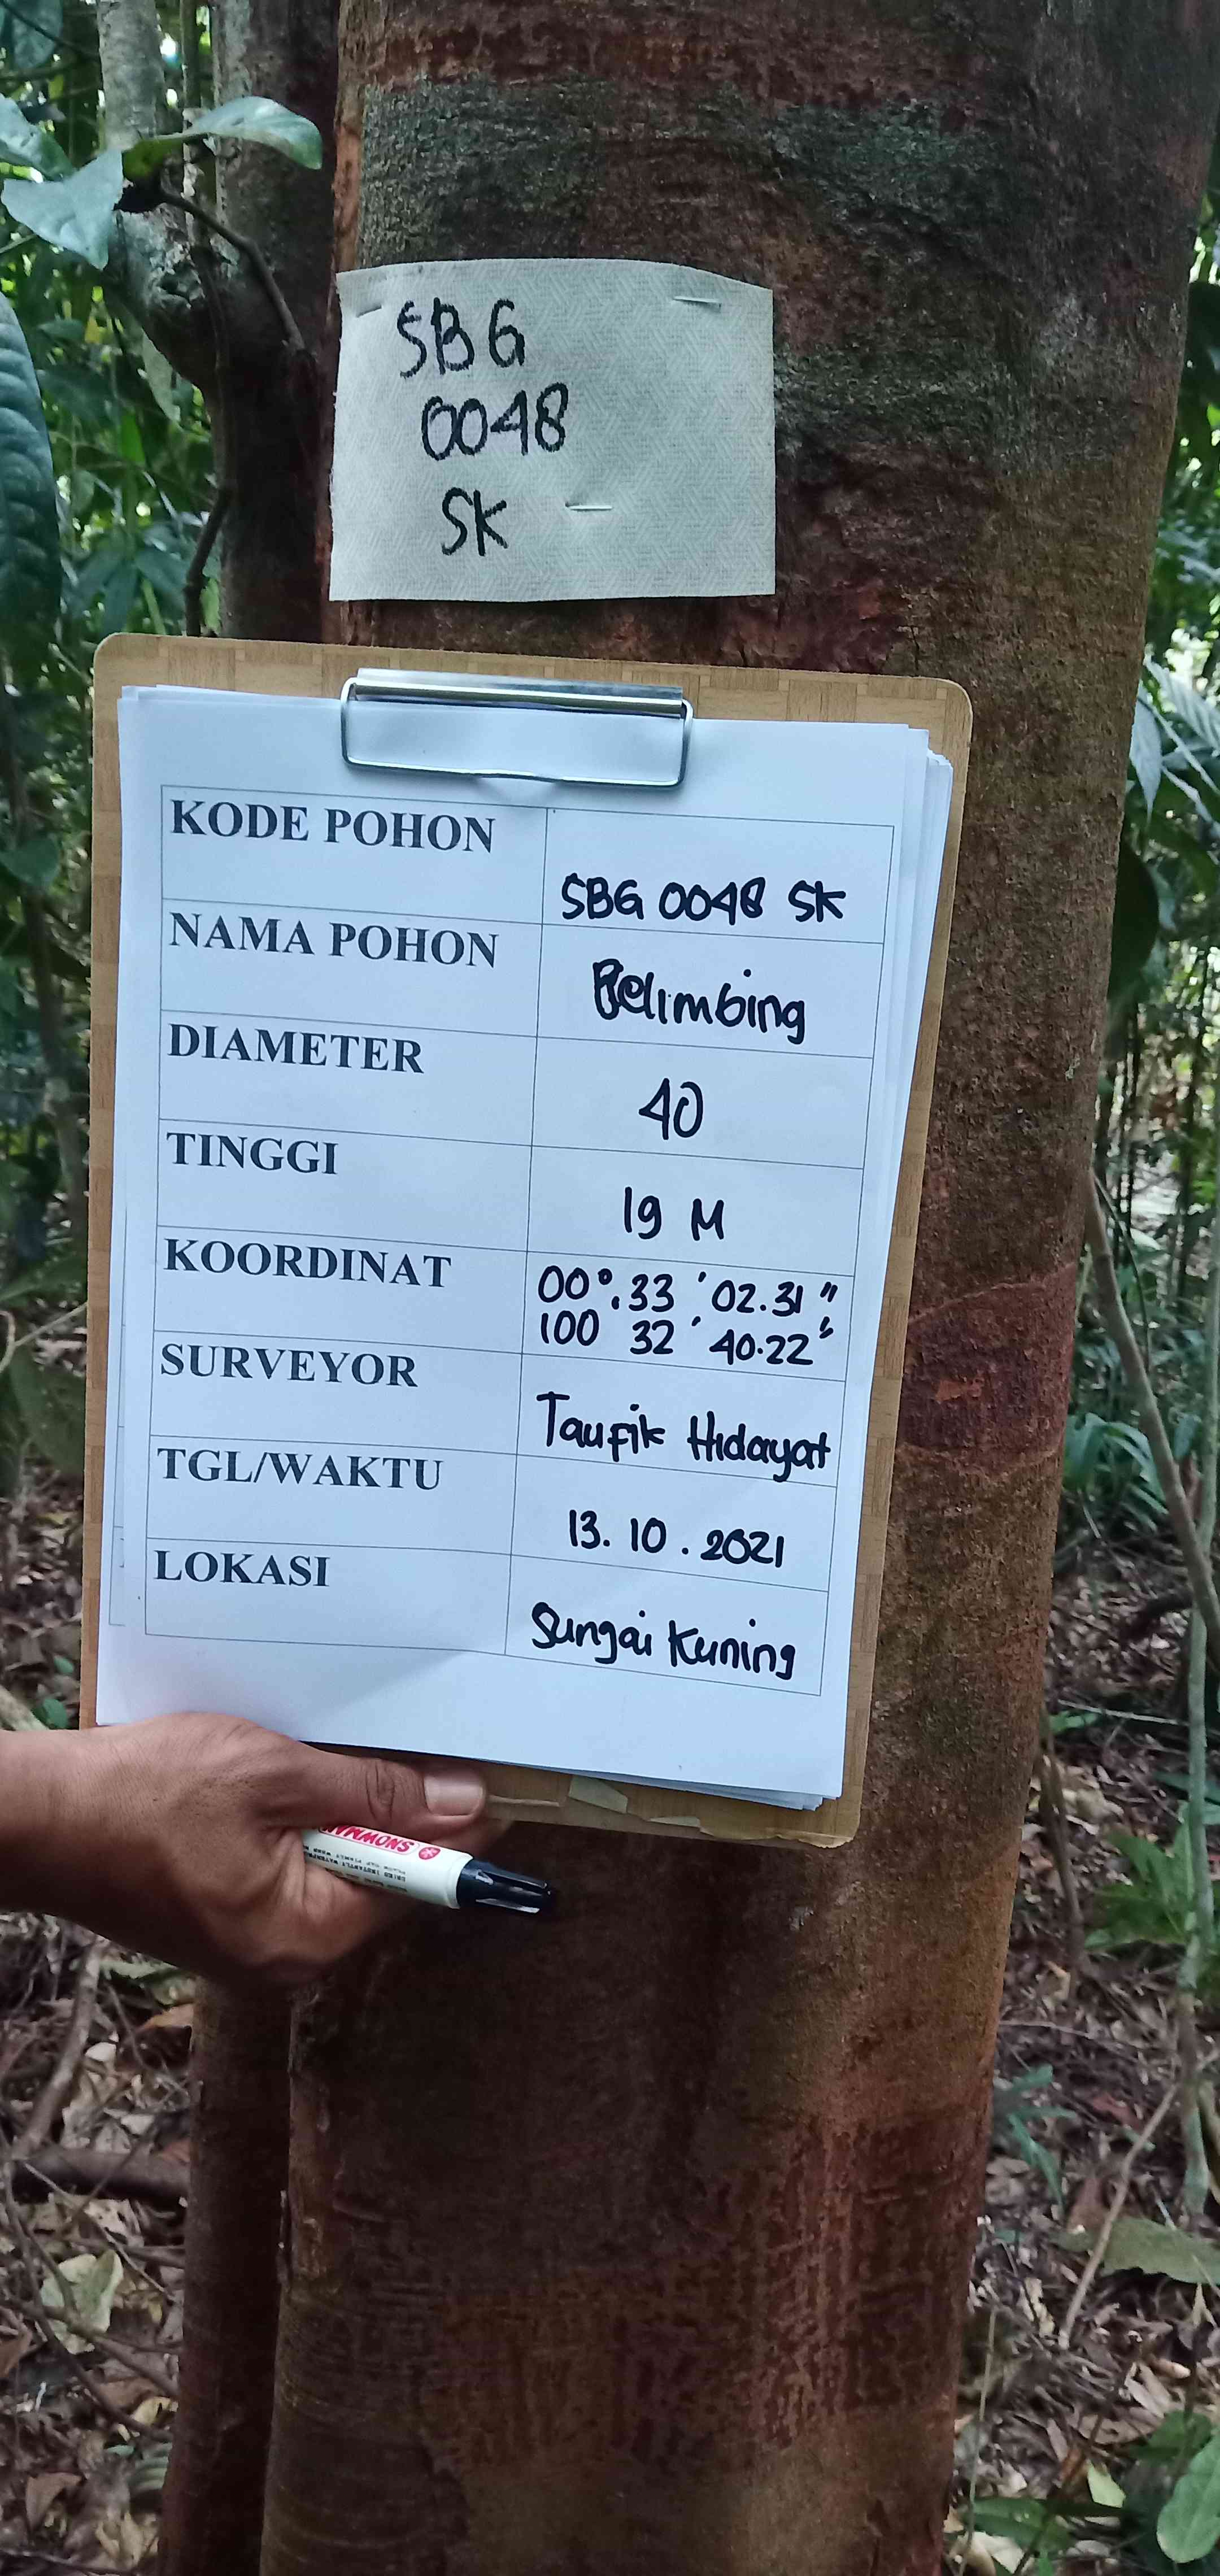 SBG
0048
SK
KODE POHON
SBG 0048 SK
NAMA POHON
Belimbing
DIAMETER
40
TINGGI
19 M
KOORDINAT
00°.33 ' 02.31 "
100 32 ' 40.22 "
SURVEYOR
Taufik Hidayat
TGL/WAKTU
13. 10 . 2021
LOKASI
Sungai Kuning
SNOWMAN